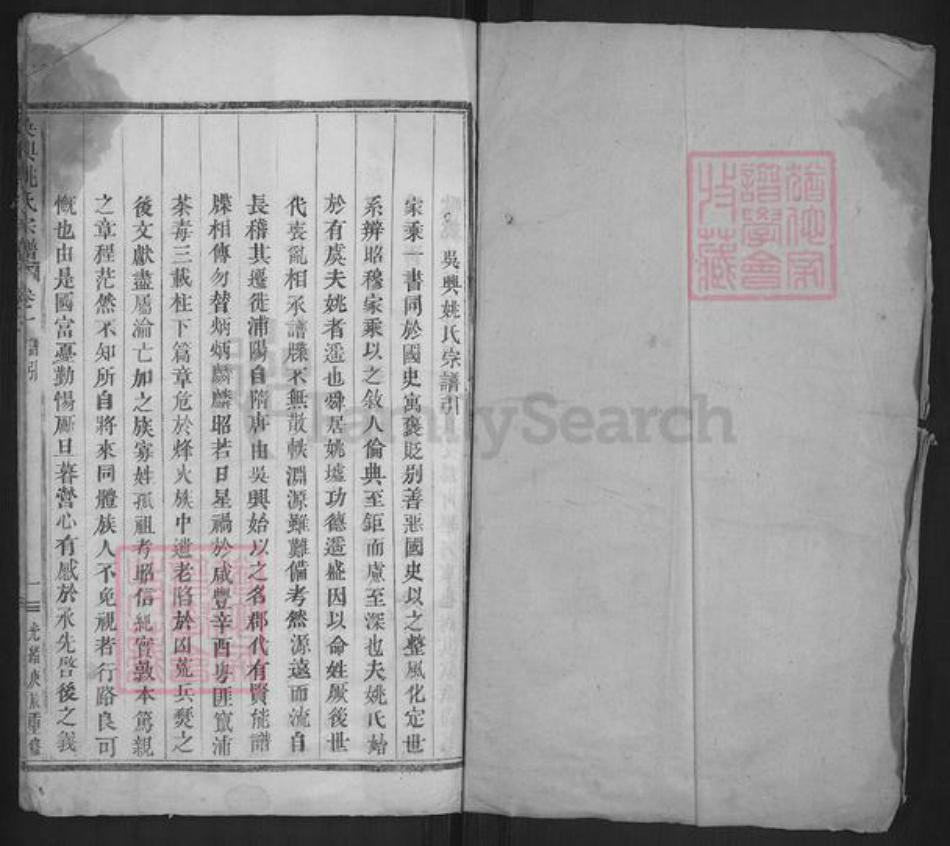 吳興姚氏宗譜引
家乘一書同於國史寓褒貶别善惡國史以之整風化定世
系辨昭穆家乘以之敘人倫典至鉅而慮至深也夫姚氏始
於有虞夫姚者遥也舜居姚墟功德遥盛因以命姓厥後世
代喪亂相承譜牒不無散軼淵源雖難備考然源遠而流自
長稽其遷徙浦陽自隋唐由吳興始以之名郡代有賢能譜
牒相傳勿替炳炳麟麟昭若日星禍於咸豐辛酉粤匪竄浦
荼毒三載柱下篇章危於烽火族中遺老陷於凶荒兵燹之
後文獻盡屬淪亡加之族寡姓孤祖考昭信純實敦本篤親
之章程茫然不知所自將來同體族人不免視者行路良可
慨也由是國富憂勤惕厲旦暮營心有感於承先啓後之義
吳興姚氏宗譜 卷之一 譜引 一 光緒庚辰重修
FamilySearch
譜學會
收藏